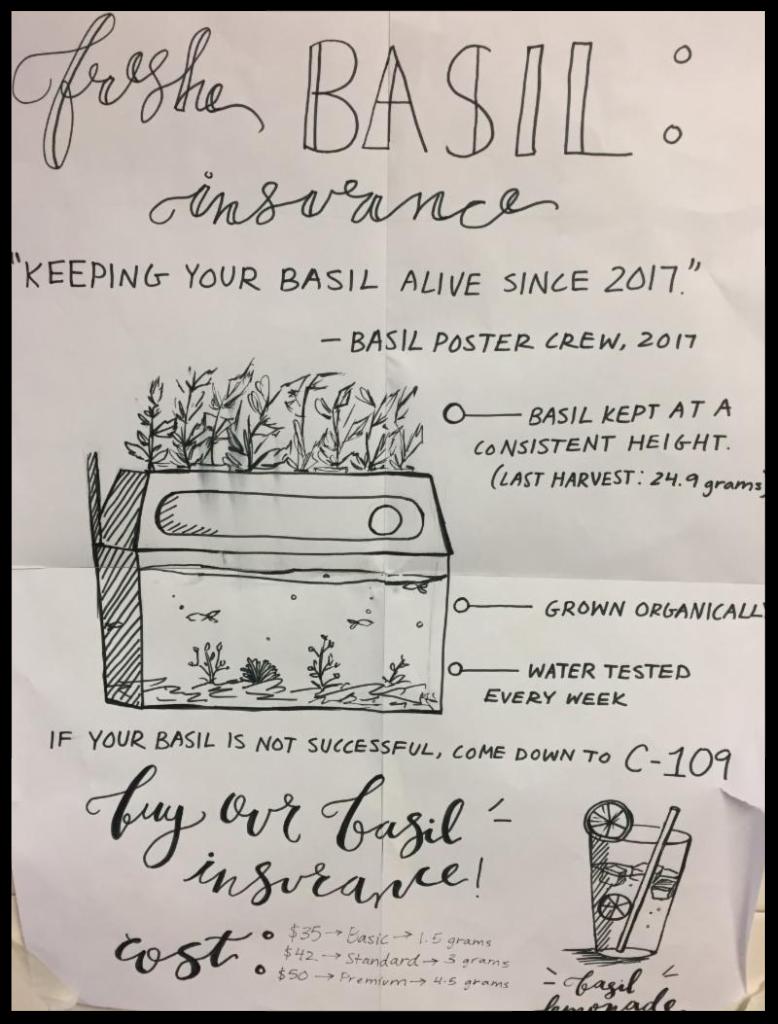 fresh BASIL:
insurance
"KEEPING YOUR BASIL ALIVE SINCE 2017."
– BASIL POSTER CREW, 2017
BASIL KEPT AT A
CONSISTENT HEIGHT.
(LAST HARVEST: 24.9 grams)
GROWN ORGANICALLY
WATER TESTED
EVERY WEEK
IF YOUR BASIL IS NOT SUCCESSFUL, COME DOWN TO C-109
buy our basil
insurance!
cost:
$35→Basic→1.5 grams
$42→Standard→3 grams
$50→Premium→4.5 grams
basil
lemonade